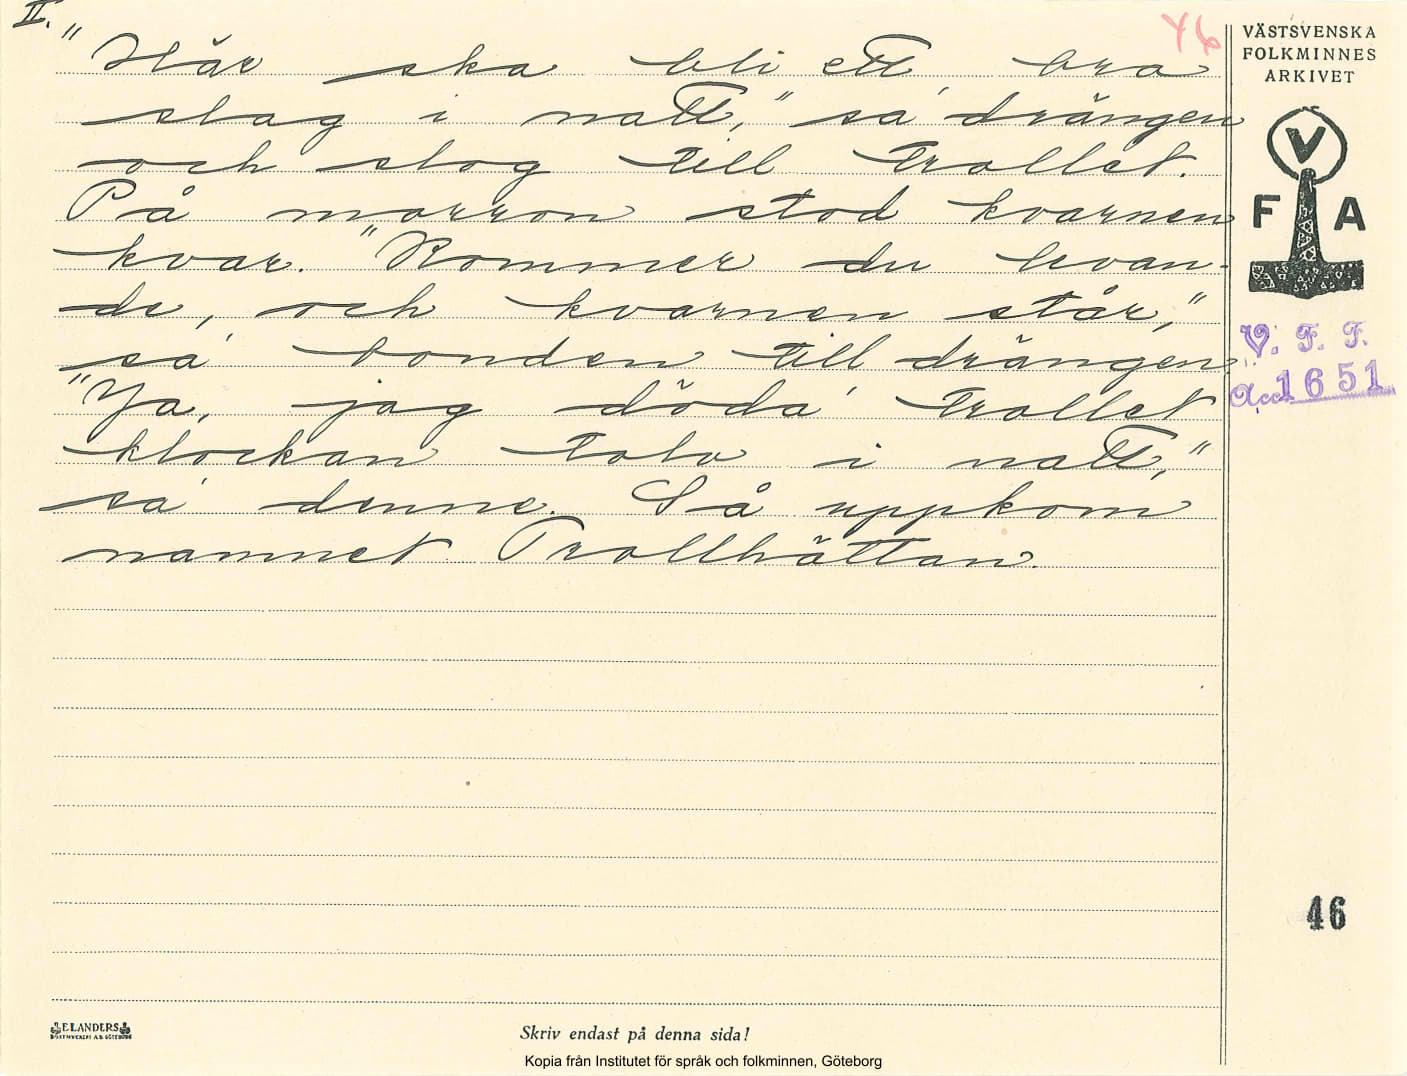 II.
46
"Här ska bli ett bra
slag i natt," sa' drängen
och slog till trollet.
På morron stod kvarnen
kvar. "Kommer du levan-
de, och kvarnen står,"
sa' bonden till drängen.
"Ja, jag döda' trollet
klockan tolv i natt,"
sa' denne. Så uppkom
namnet Trollhättan.
VÄSTSVENSKA
FOLKMINNES
ARKIVET
V
F A
V. F. F.
Acc 1651
46
ELANDERS
Skriv endast på denna sida!
Kopia från Institutet för språk och folkminnen, Göteborg